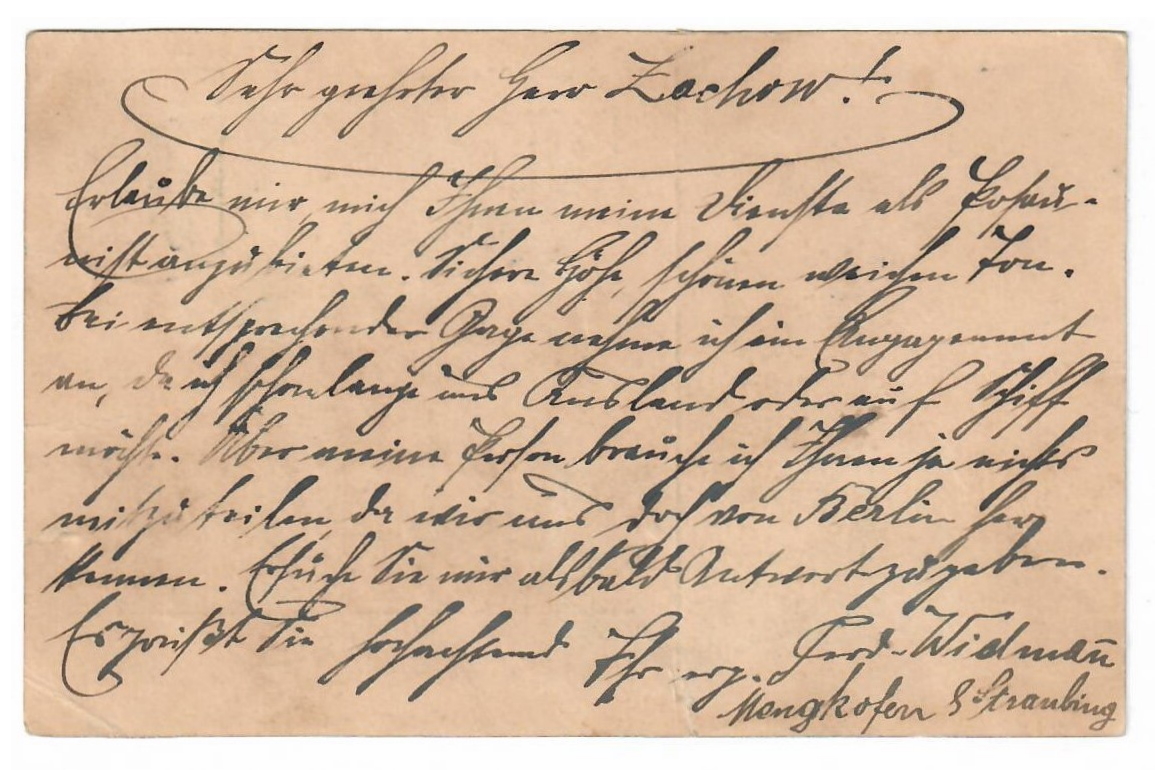 Sehr geehrter Herr Zachow!
Erlaube mir, mich Ihnen meine Dienste als Posau-
nist anzubieten. Sichere Höhe, schönen weichen Ton.
Bei entsprechender Gage nehme ich ein Engagement
an, da ich schon lange ins Ausland oder auf Schiff
möchte. Über meine Person brauche ich Ihnen ja nichts
mitzuteilen, da wir uns doch von Berlin her
kennen. Ersuche Sie mir alsbald Antwort zu geben.
Es grüßt Sie hochachtend Ihr erg. Ferd. Widmañ
Mengkofen Straubing